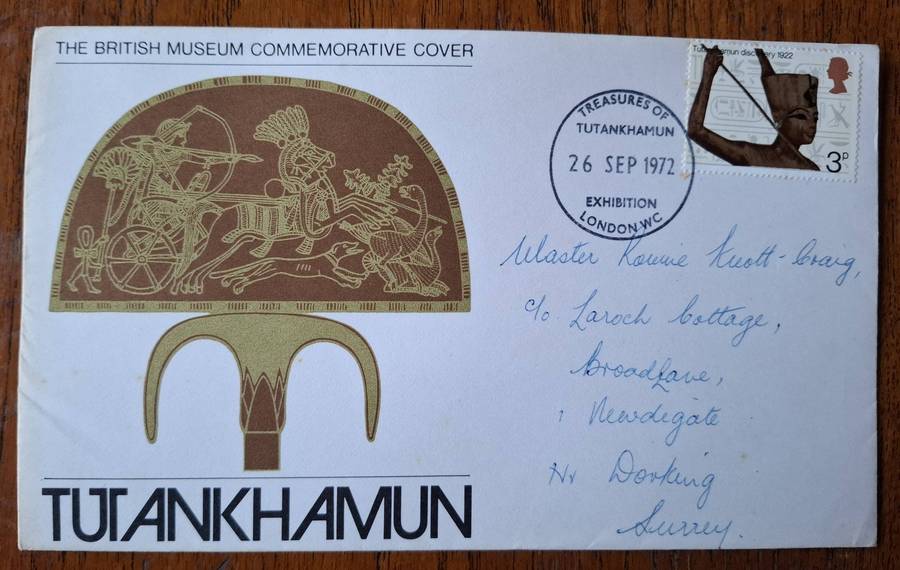 THE BRITISH MUSEUM COMMEMORATIVE COVER
Tutankhamun discovery 1922
3P
TREASURES OF
TUTANKHAMUN
26 SEP 1972
EXHIBITION
LONDON WC
Master Ronnie Knott-Craig,
c/o Laroch Cottage,
Broad Lane,
Newdigate
Nr Dorking
Surrey.
TUTANKHAMUN